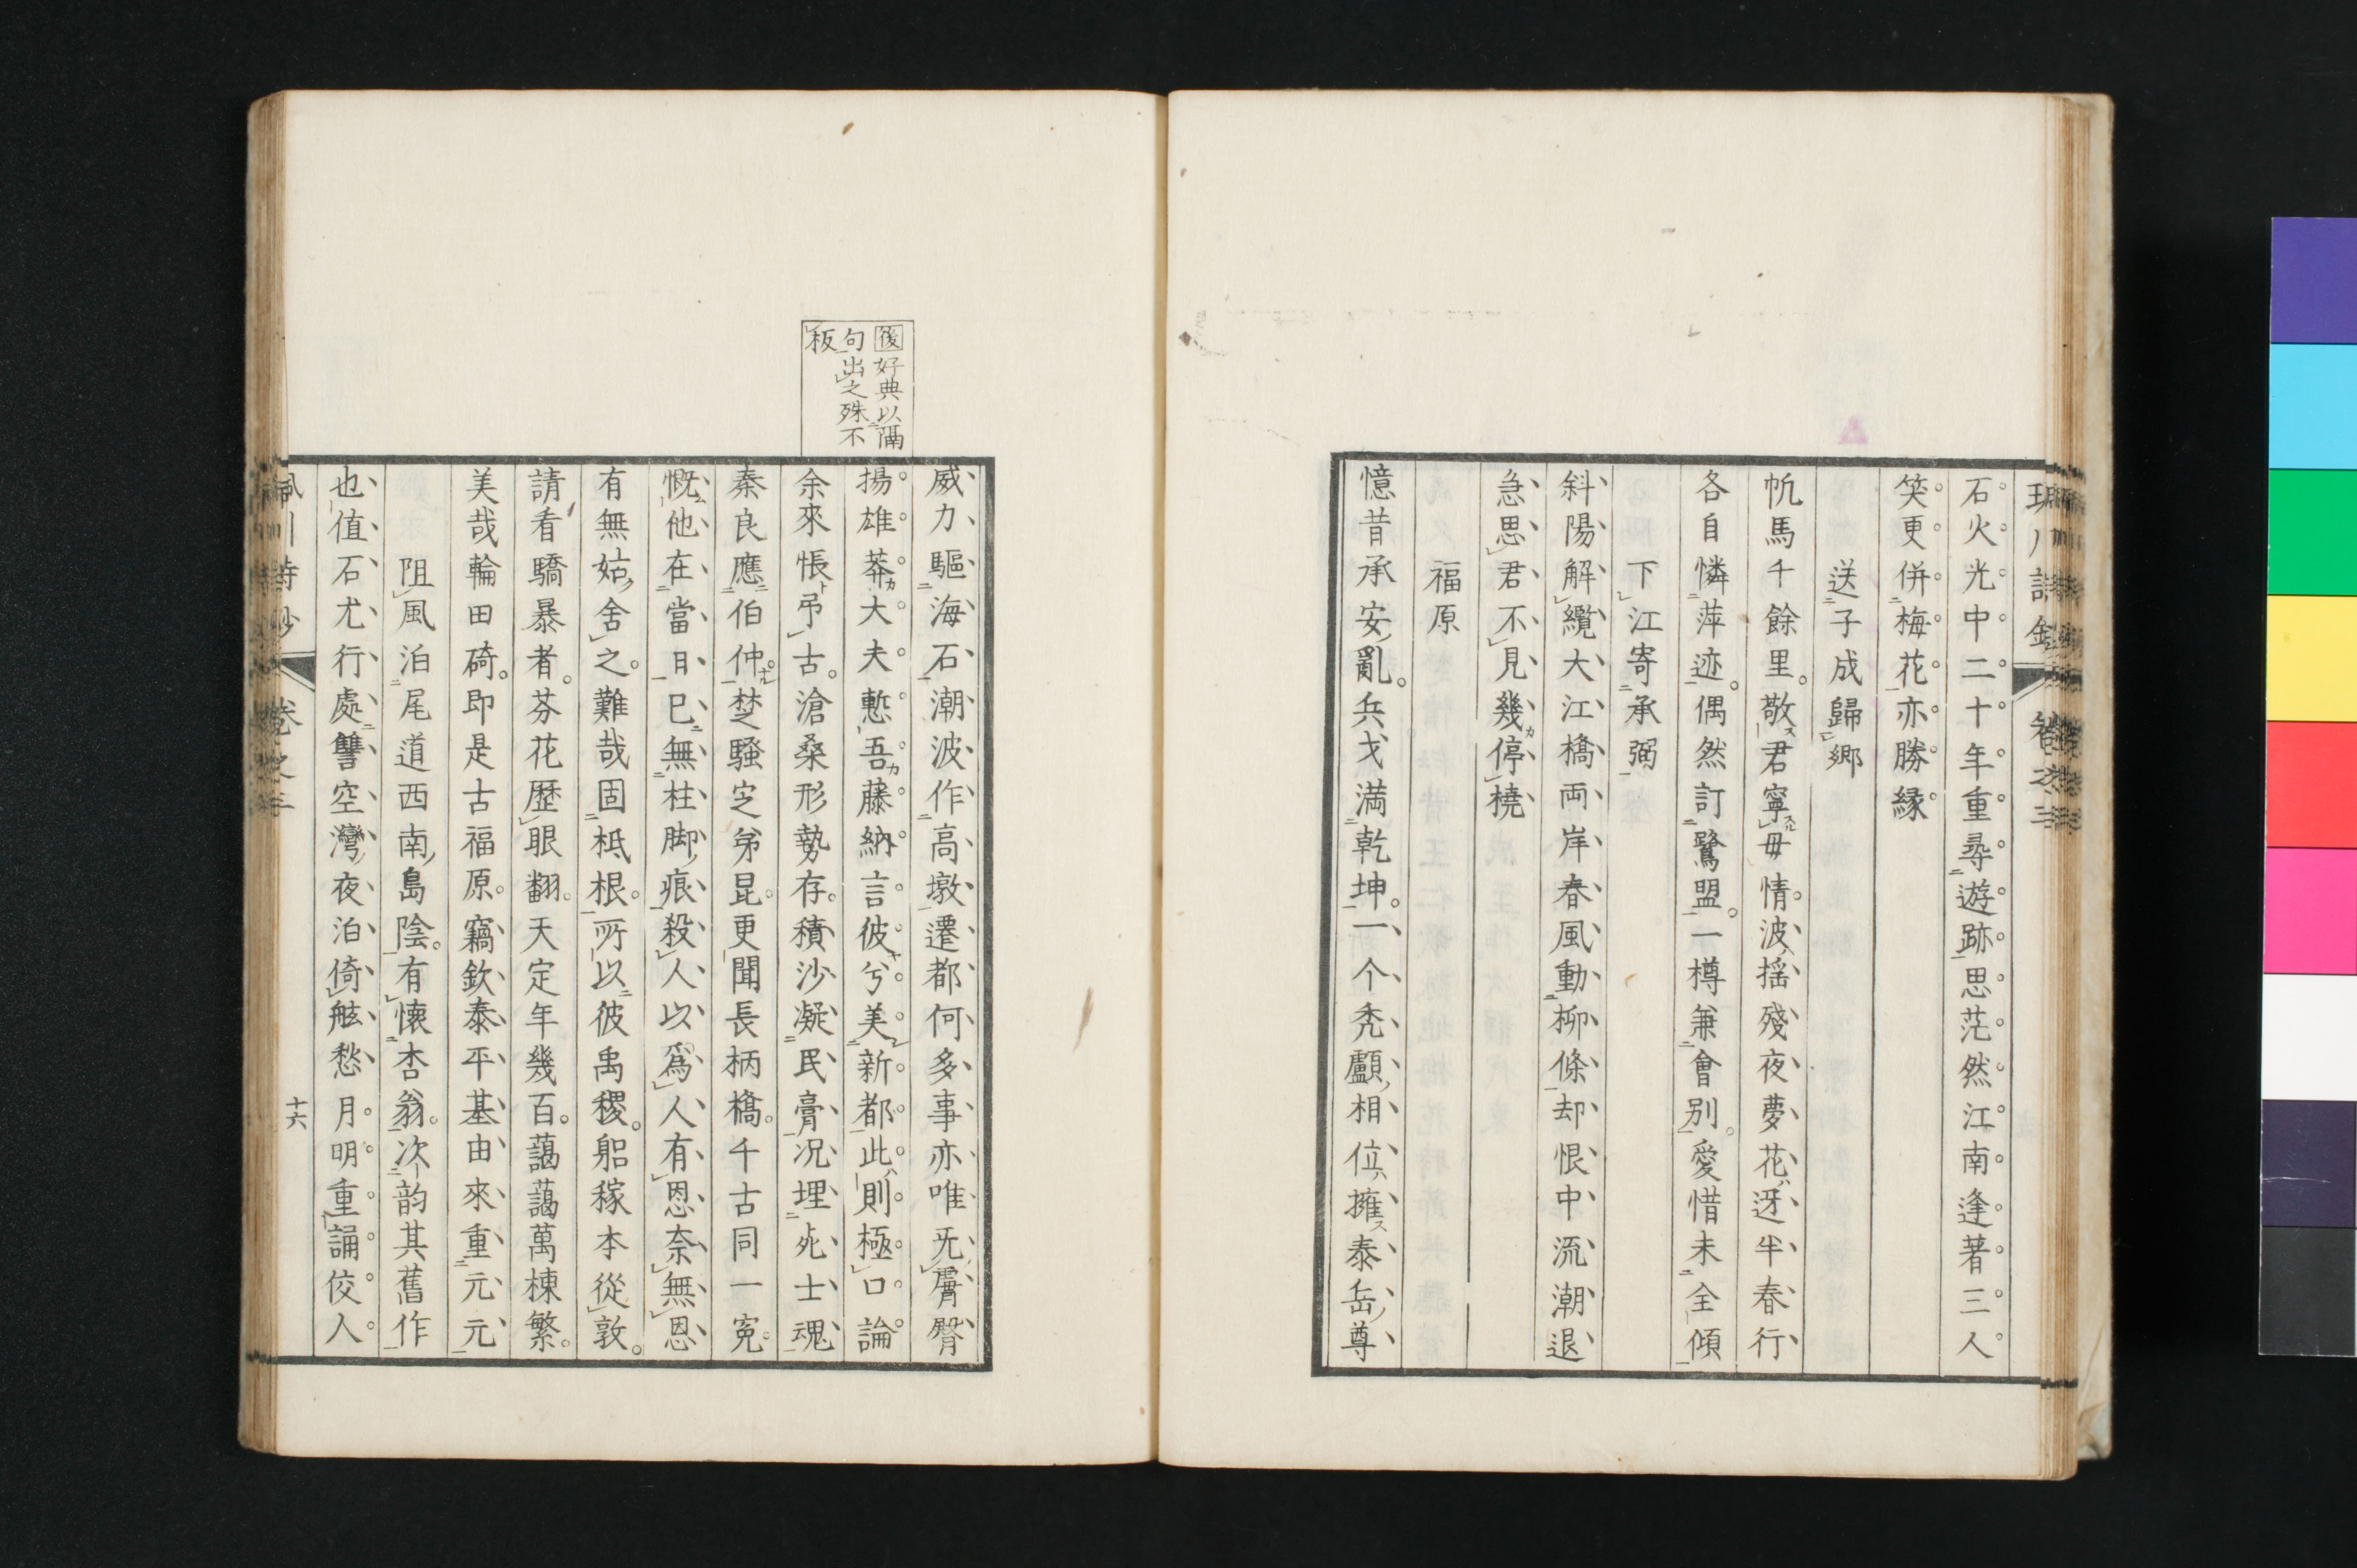 石火光中二十年重尋遊跡思茫然江南逢著三人
笑更併梅花亦勝縁
送子成歸郷
帆馬千餘里敬君寧母情波揺殘夜夢花迓半春行
各自憐萍迹偶然訂鷺盟一樽兼會別愛惜未全傾
下江寄承弼
斜陽解纜大江橋両岸春風動柳條却恨中流潮退
急思君不見幾停橈
福原
憶昔承安亂兵戈満乾坤一个禿顱相位擁泰岳尊
後好典以隔
句出之殊不
板
威力驅海石潮波作高墩遷都何多事亦唯旡膚臀
揚雄莽大夫慙吾藤納言彼兮美新都此則極口論
余來悵弔古滄桑形勢存積沙凝民膏况埋死士魂
秦良應伯仲楚騷定弟昆更聞長柄橋千古同一冤
慨他在當日已無柱脚痕殺人以爲人有恩奈無恩
有無姑舍之難哉固柢根所以彼禹稷躬稼本從敦
請看驕暴者芬花歴眼翻天定年幾百藹藹萬棟繁
美哉輪田碕即是古福原竊欽泰平基由來重元元
阻風泊尾道西南島陰有懐杏翁次韵其舊作
也值石尤行處讐空灣夜泊倚舷愁月明重誦佼人
詩鈔 卷之三
十六